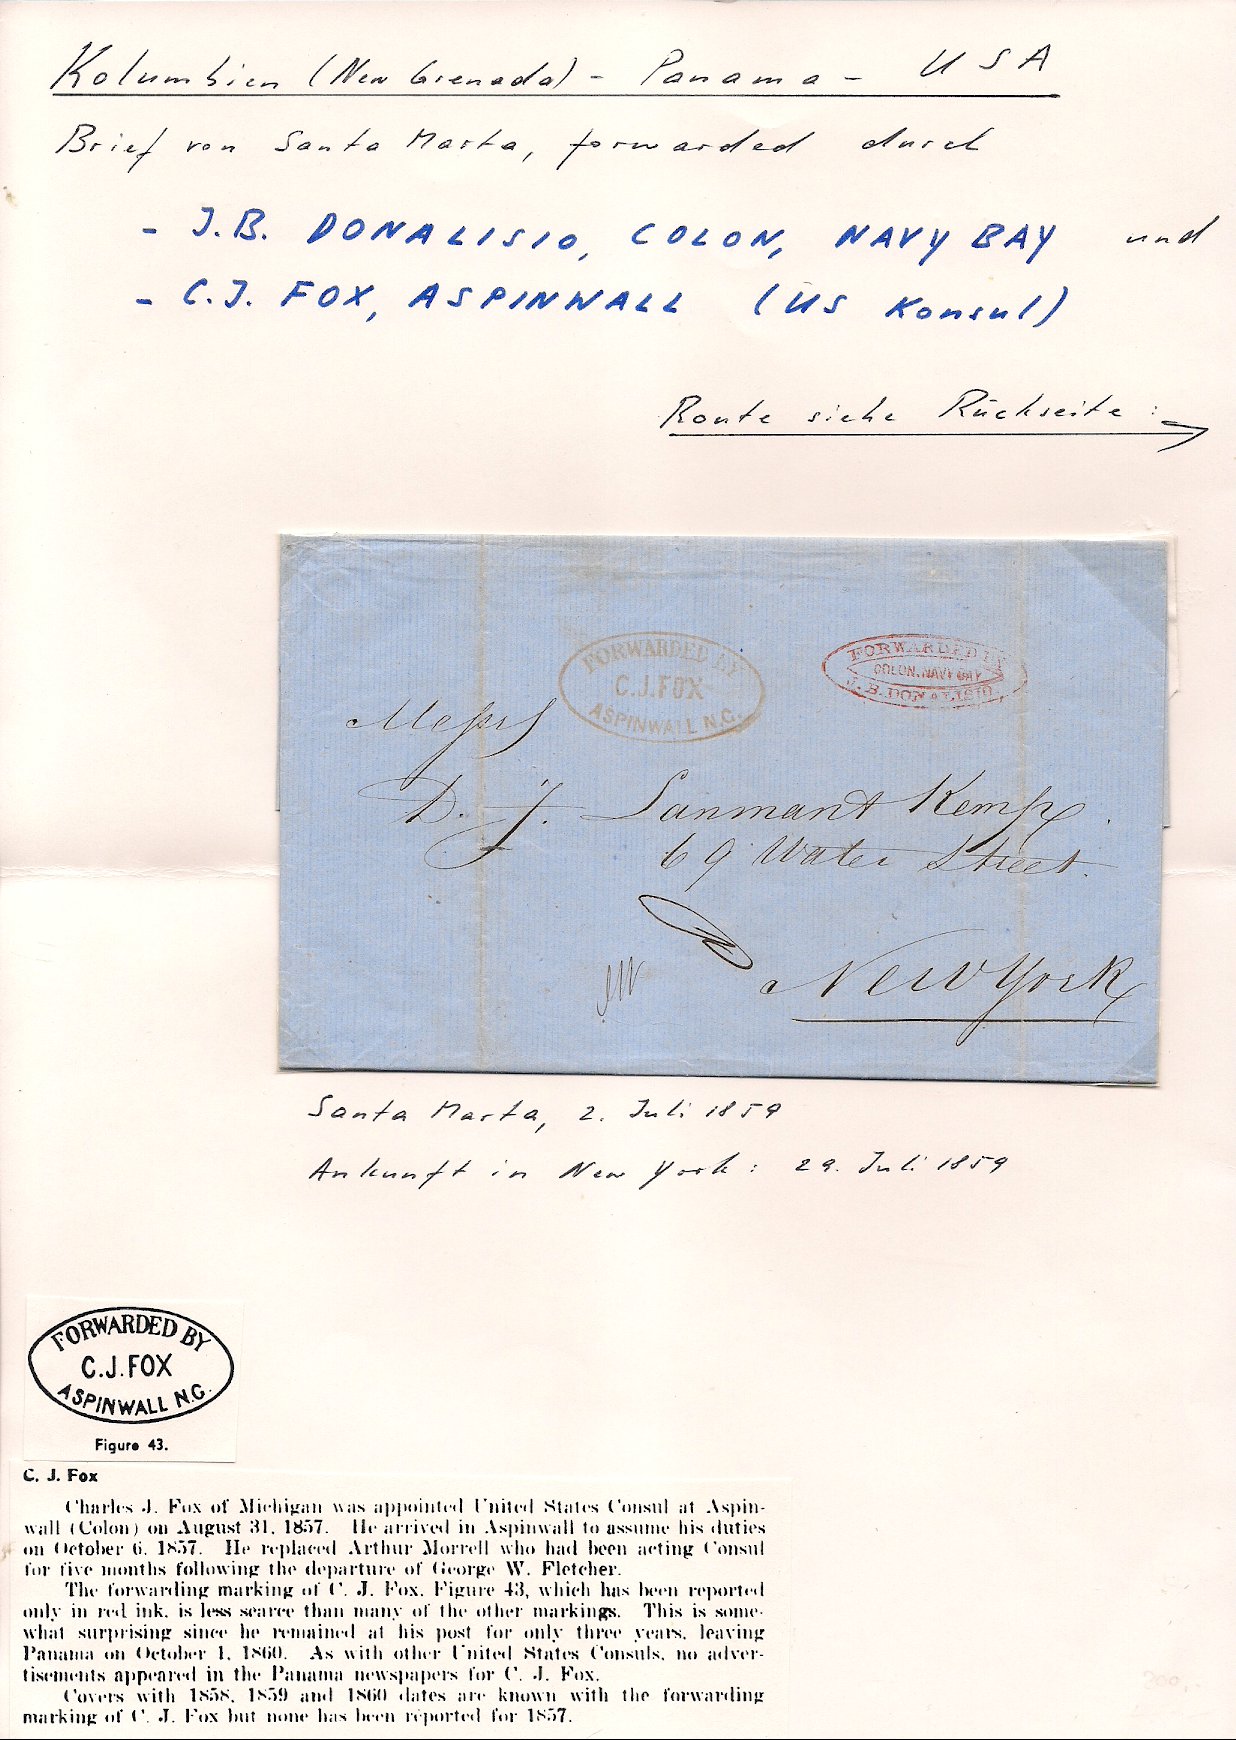 Kolumbien (New Grenada) - Panama - USA
Brief von Santa Marta, forwarded durch
- J.B. DONALISIO, COLON, NAVY BAY und
- C.J. FOX, ASPINWALL (US Konsul)
Route siehe Rückseite:
FORWARDED BY
C.J.FOX
ASPINWALL N.G.
FORWARDED BY
COLON. NAVY BAY
J. B. DONALISIO
Messrs
D. J. Lanmant Kemp
69 Water Street
New York
Santa Marta, 2. Juli 1859
Ankunft in New York: 29. Juli 1859
FORWARDED BY
C.J.FOX
ASPINWALL N.G.
Figure 43.
C. J. Fox
Charles J. Fox of Michigan was appointed United States Consul at Aspin-
wall (Colon) on August 31, 1857. He arrived in Aspinwall to assume his duties
on October 6, 1857. He replaced Arthur Morrell who had been acting Consul
for five months following the departure of George W. Fletcher.
The forwarding marking of C. J. Fox, Figure 43, which has been reported
only in red ink, is less scarce than many of the other markings. This is some-
what surprising since he remained at his post for only three years, leaving
Panama on October 1, 1860. As with other United States Consuls, no adver-
tisements appeared in the Panama newspapers for C. J. Fox.
Covers with 1858, 1859 and 1860 dates are known with the forwarding
marking of C. J. Fox but none has been reported for 1857.
200,-